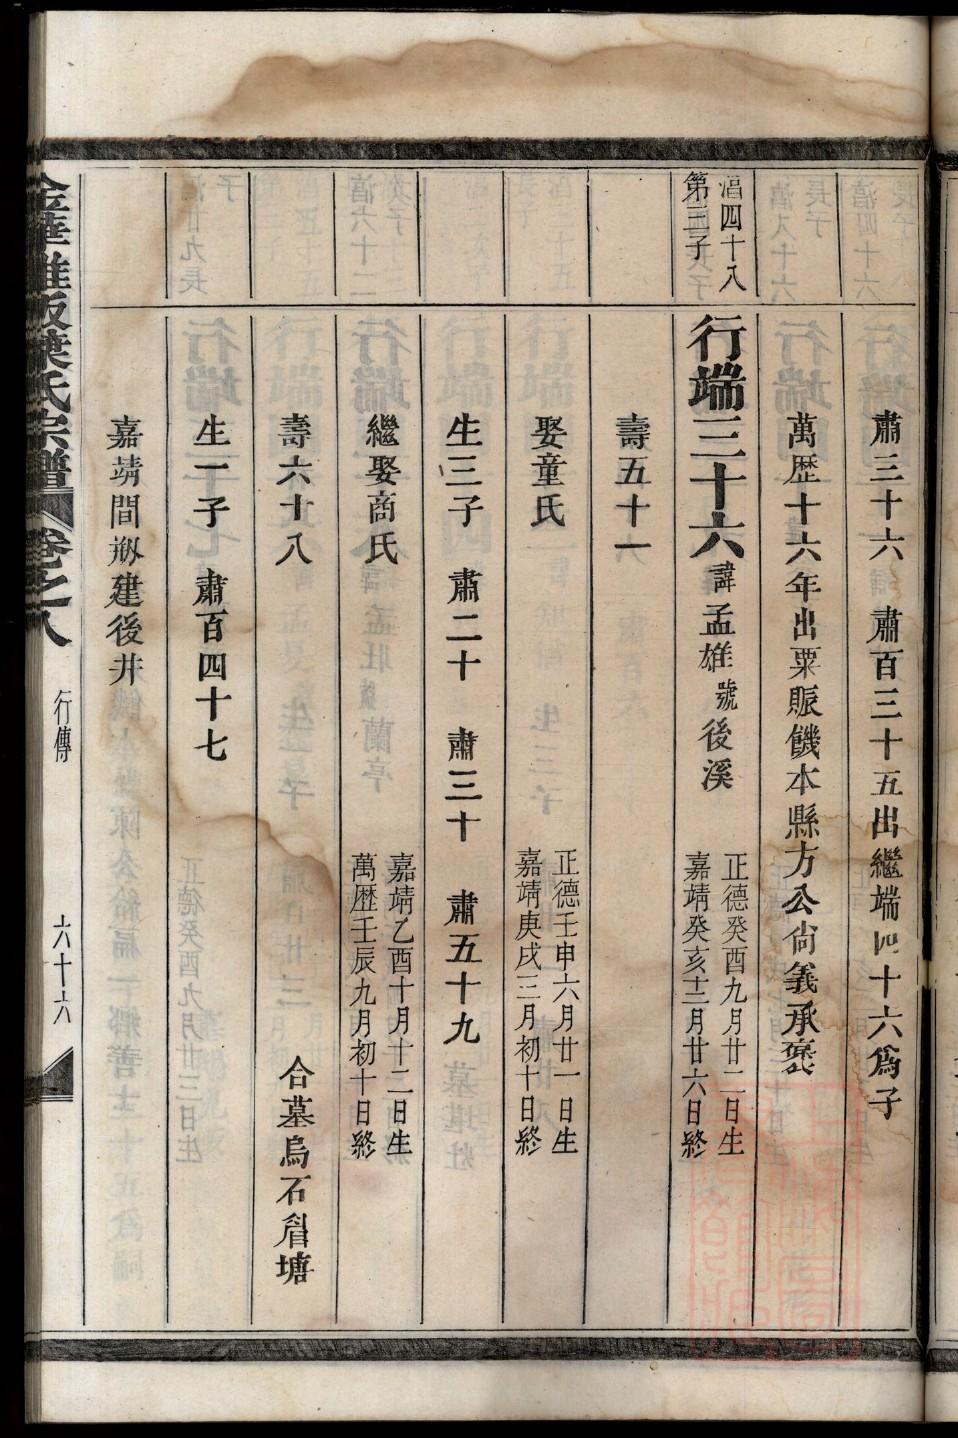 肅三十六 肅百三十五出繼端四十六爲子
萬歷十六年出粟賑饑本縣方公尙義承褒
湻四十八
第三子
行端三十六 諱孟雄 號後溪
正德癸酉九月廿二日生
嘉靖癸亥十二月廿六日終
壽五十一
娶童氏
正德壬申六月廿一日生
嘉靖庚戌三月初十日終
生三子 肅二十 肅三十 肅五十九
繼娶商氏
嘉靖乙酉十月十二日生
萬歷壬辰九月初十日終
壽六十八
合墓烏石眉塘
生一子 肅百四十七
嘉靖間剏建後井
葉氏宗譜 卷之八
行傳
六十六